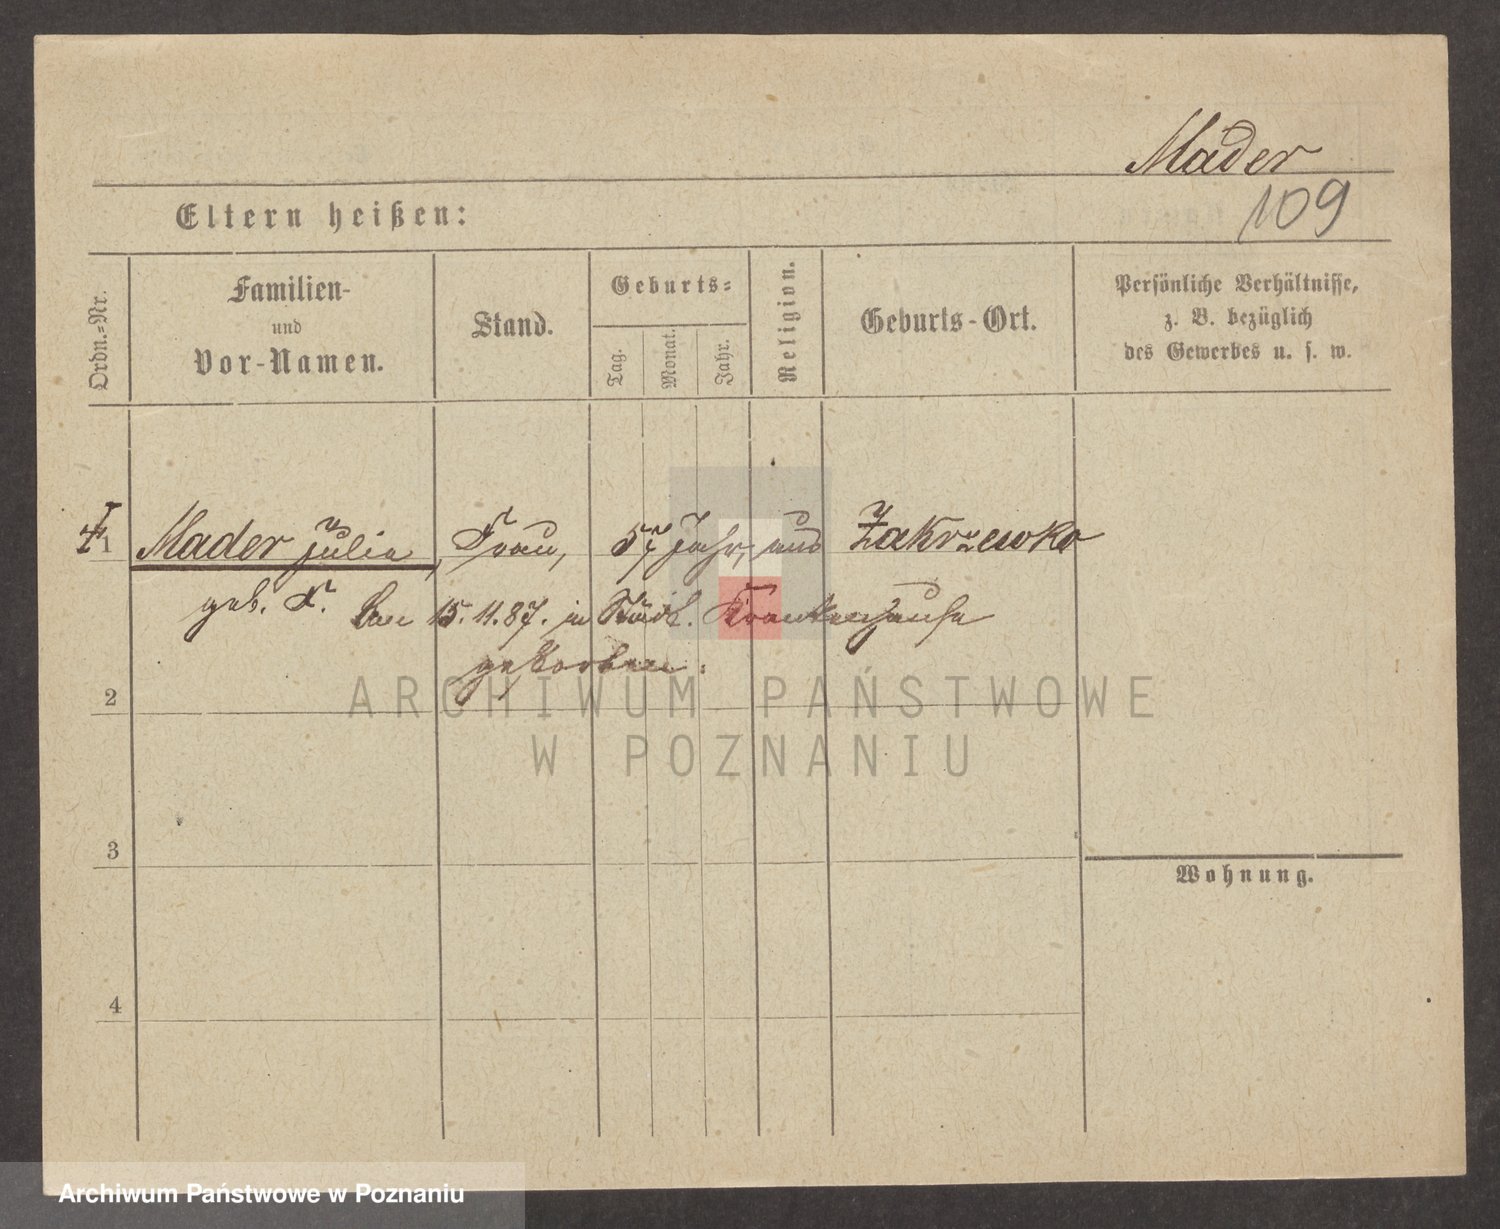 Mader
109
Eltern heißen:
Ordn.-Nr.
Familien-
und
Vor-Namen.
Stand.
Geburts-
Tag.
Monat.
Jahr.
Religion.
Geburts-Ort.
Persönliche Verhältnisse,
z. B. bezüglich
des Gewerbes u. s. w.
1 Mader Julie, Frau, 57 Jahr, aus Zakrzewko
geb. F. Am 15.11.87. in Städt. Krankenhause
gestorben.
2
ARCHIWUM PAŃSTWOWE
W POZNANIU
3
Wohnung.
4
Archiwum Państwowe w Poznaniu